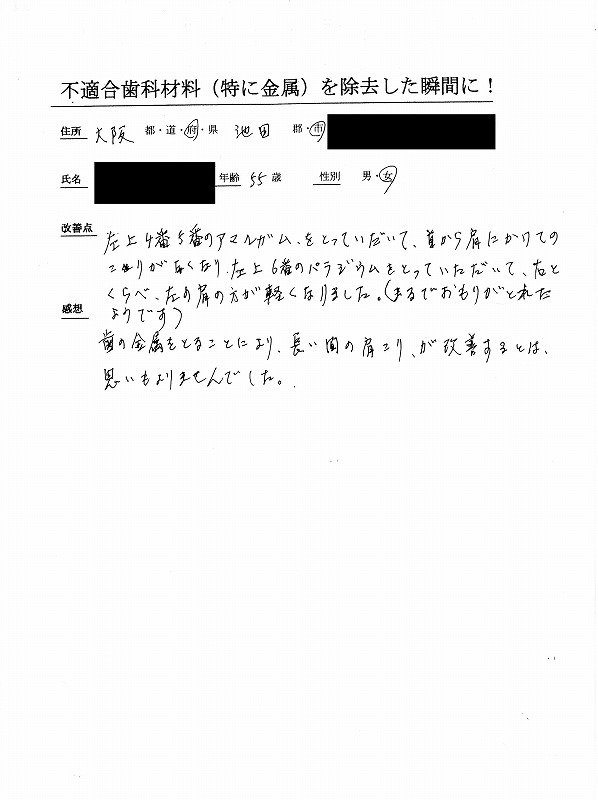 不適合歯科材料（特に金属）を除去した瞬間に！
住所 大阪 都・道・府・県 池田 郡・市
氏名 年齢 55 歳 性別 男・女
改善点
左上4番5番のアマルガム、をとっていだいて、首から肩にかけての
こりが なくなり、左上6番のパラジウムをとっていただいて、右と
くらべ、左の肩の方が軽くなりました。(まるでおもりがとれた
感想
ようです)
歯の金属をとることにより、長い間の肩こり、が改善するとは、
思いもよりませんでした。